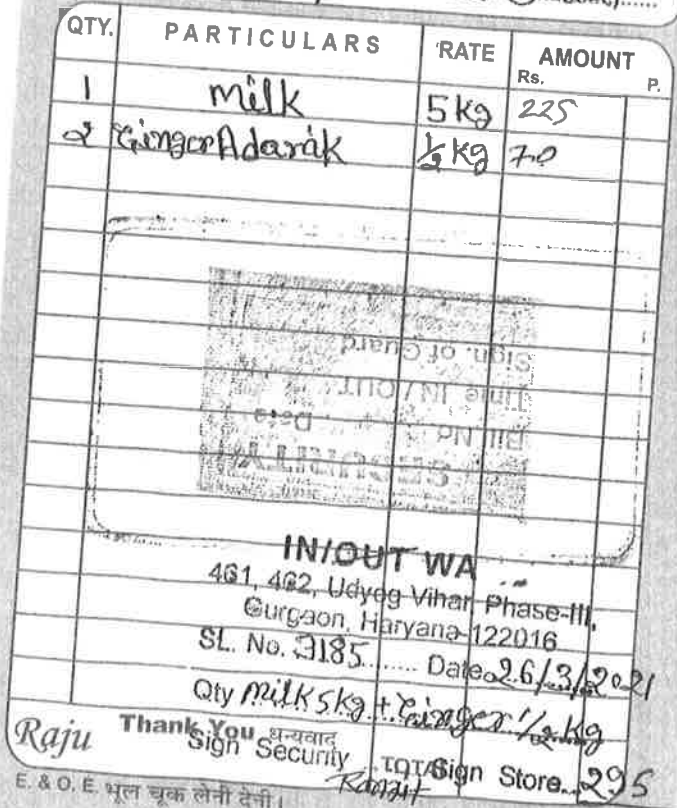 QTY. PARTICULARS RATE AMOUNT
Rs. P.
1 Milk 5 kg 225
2 Ginger Adarak 1/2 kg 70
Sign. of Guard
Time IN/OUT
Bill No. Date
SECURITY
IN/OUT WA
461, 462, Udyog Vihar Phase-III,
Gurgaon, Haryana-122016
SL. No. 3185 Date 26/3/2021
Qty Milk 5kg + Ginger 1/2 kg
Raju Thank You धन्यवाद
Sign Security TOTAL Sign Store 295
Ranjit
E. & O. E. भूल चूक लेनी देनी।